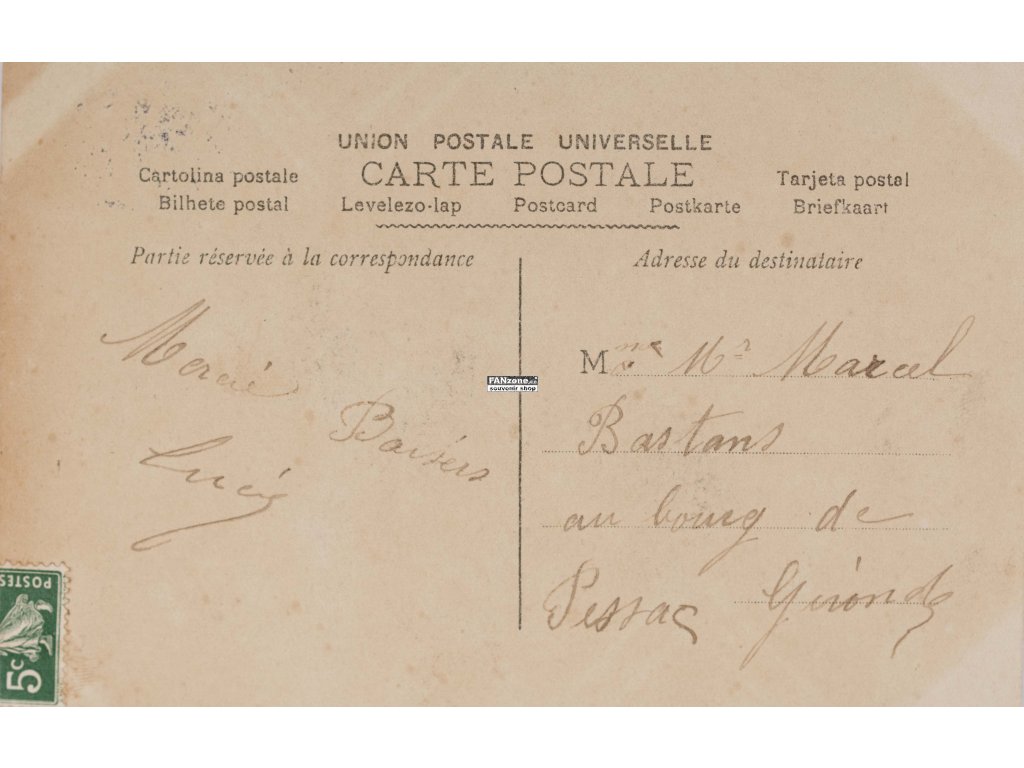 UNION POSTALE UNIVERSELLE
CARTE POSTALE
Cartolina postale
Tarjeta postal
Bilhete postal
Levelezo-lap
Postcard
Postkarte
Briefkaart
Partie réservée à la correspondance
Adresse du destinataire
Baisers
Mme Mr Marcel
Bastans
au bourg de
Pessac Gironde
FANzone
souvenir shop
POSTES
5c